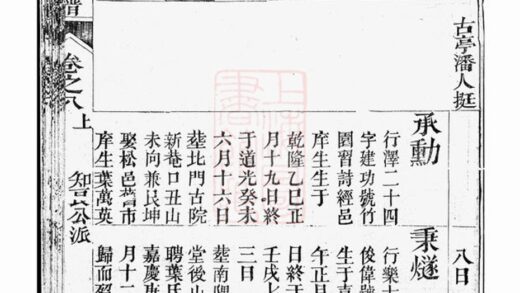 古亭潘人挺
八日
承勳
行澤二十四
字建功號竹
園習詩經邑
庠生生于
乾隆乙巳正
月十九日終
于道光癸未
六月十六日
塟北門古院
新菴口丑山
未向兼艮坤
娶松邑舊市
庠生葉萬英
秉燧
行樂十
俊偉號
生于嘉
午正月
日終于
壬戌七
三日
塟南
堂後山
聘葉氏
嘉慶庚
月十二
歸而
譜
卷之八
上
公派